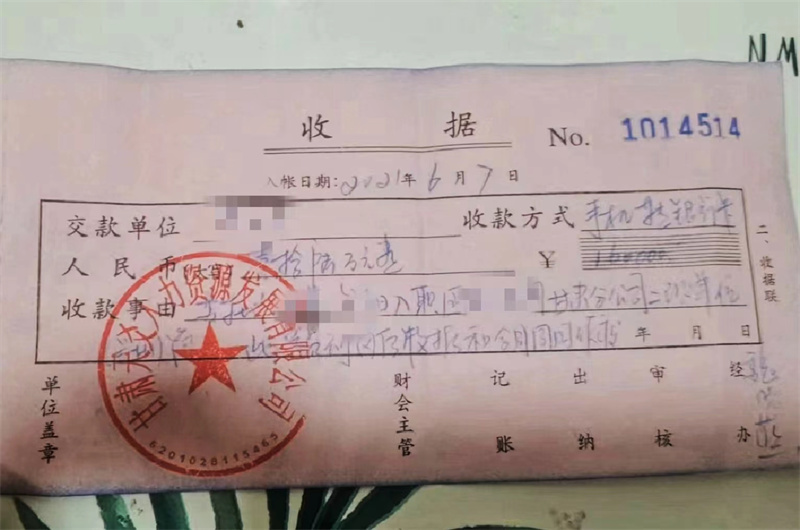 NM
收 据 No. 1014514
入帐日期:2021年6月7日
交款单位 收款方式 手机转银行卡
人民币(大写) 壹拾陆万元整 ¥ 160000
收款事由 入职 甘肃分公司二级单位
收据和合同同时作废 年 月 日
二、收据联
单位盖章 财会主管 记账 出纳 审核 经办
人力资源发展有限公司
6201028115465